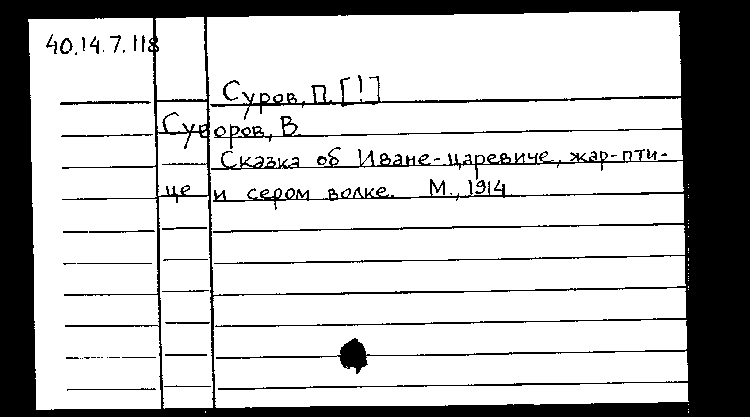 40.14.7.118
Суров, П. [!]
Суворов, В.
Сказка об Иване-царевиче, жар-пти-
це и сером волке. М., 1914